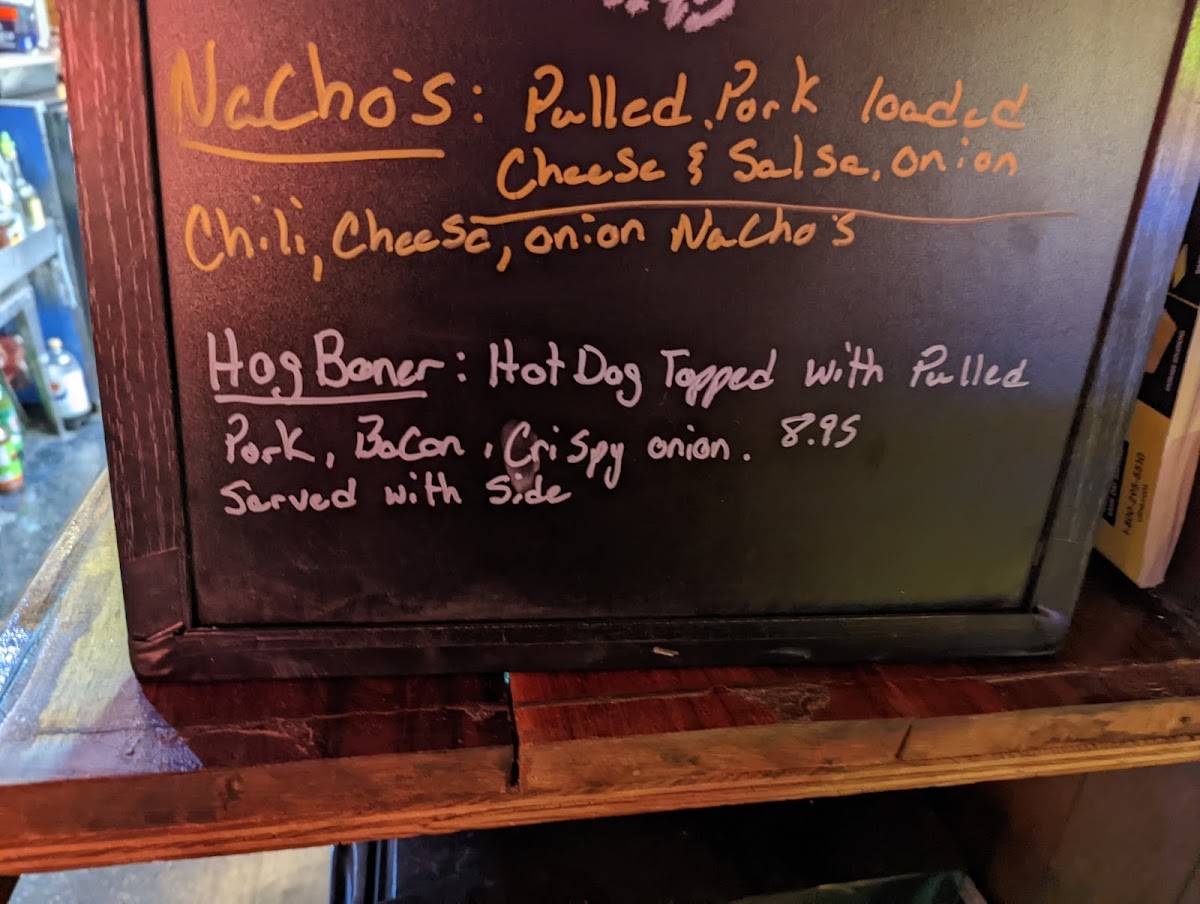 Nacho's: Pulled Pork loaded
Cheese & Salsa, onion
Chili, Cheese, onion Nacho's
Hog Boner: Hot Dog Topped with Pulled
Pork, Bacon, Crispy onion. 8.95
Served with Side
1-800-205-8510